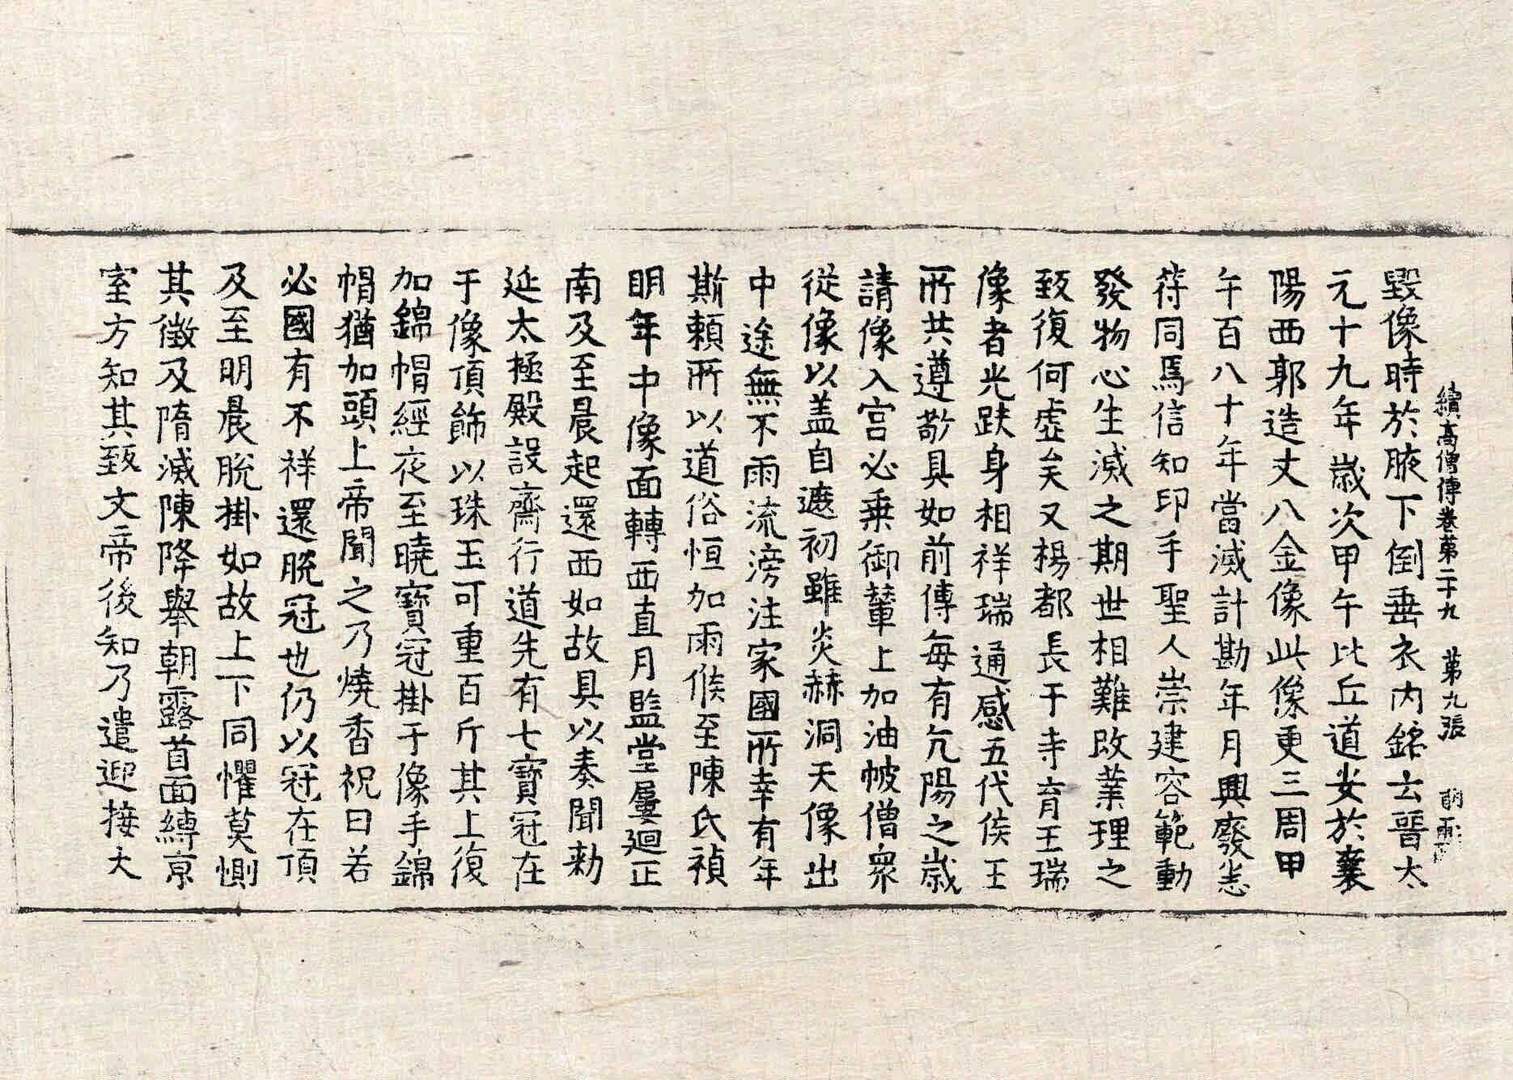 續高僧傳卷第二十九　第九張
毀像時於腋下倒垂衣內銘云晉太
元十九年歲次甲午比丘道安於襄
陽西郭造丈八金像此像更三周甲
午百八十年當滅計勘年月興廢悉
符同焉信知印手聖人崇建容範動
發物心生滅之期世相難改業理之
致復何虛矣又楊都長干寺育王瑞
像者光趺身相祥瑞通感五代侯王
所共遵敬具如前傳每有亢陽之歲
請像入宮必乘御輦上加油帔僧眾
從像以蓋自遮初雖炎赫洞天像出
中途無不雨流滂注家國所幸有年
斯賴所以道俗恒加雨候至陳氏禎
明年中像面轉西直月監堂屢迴正
南及至晨起還西如故具以奏聞勅
延太極殿設齋行道先有七寶冠在
于像頂飾以珠玉可重百斤其上復
加錦帽經夜至曉寶冠掛于像手錦
帽猶加頭上帝聞之乃燒香祝曰若
必國有不祥還脫冠也仍以冠在頂
及至明晨脫掛如故上下同懼莫惻
其徵及隋滅陳降舉朝露首面縛京
室方知其致文帝後知乃遣迎接大